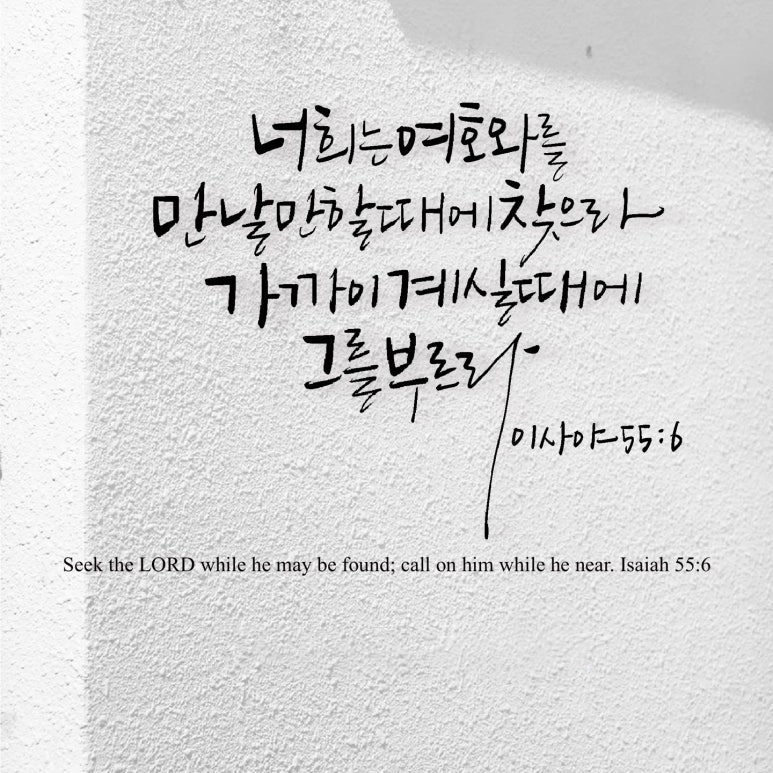 너희는 여호와를
만날만한때에 찾으라
가까이 계실때에
그를 부르라
이사야 55:6
Seek the LORD while he may be found; call on him while he near. Isaiah 55:6